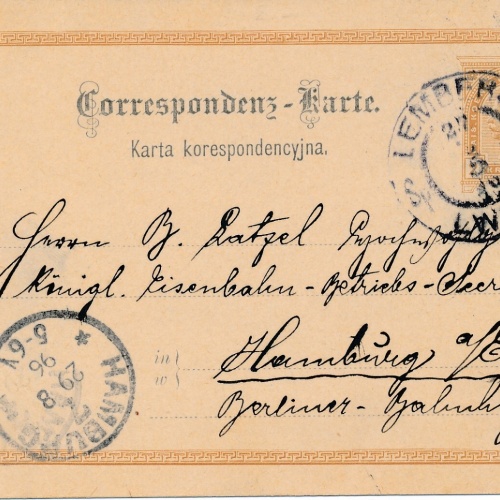 Correspondenz-Karte.
Karta korespondencyjna.
LEMBERG
LWÓ
Herrn B. Latzel
Königl. Eisenbahn-Betriebs-Secr
in
w
Hamburg a/E
Berliner-Bahnh
HAMBURG
* 5-6 V
29 8
96